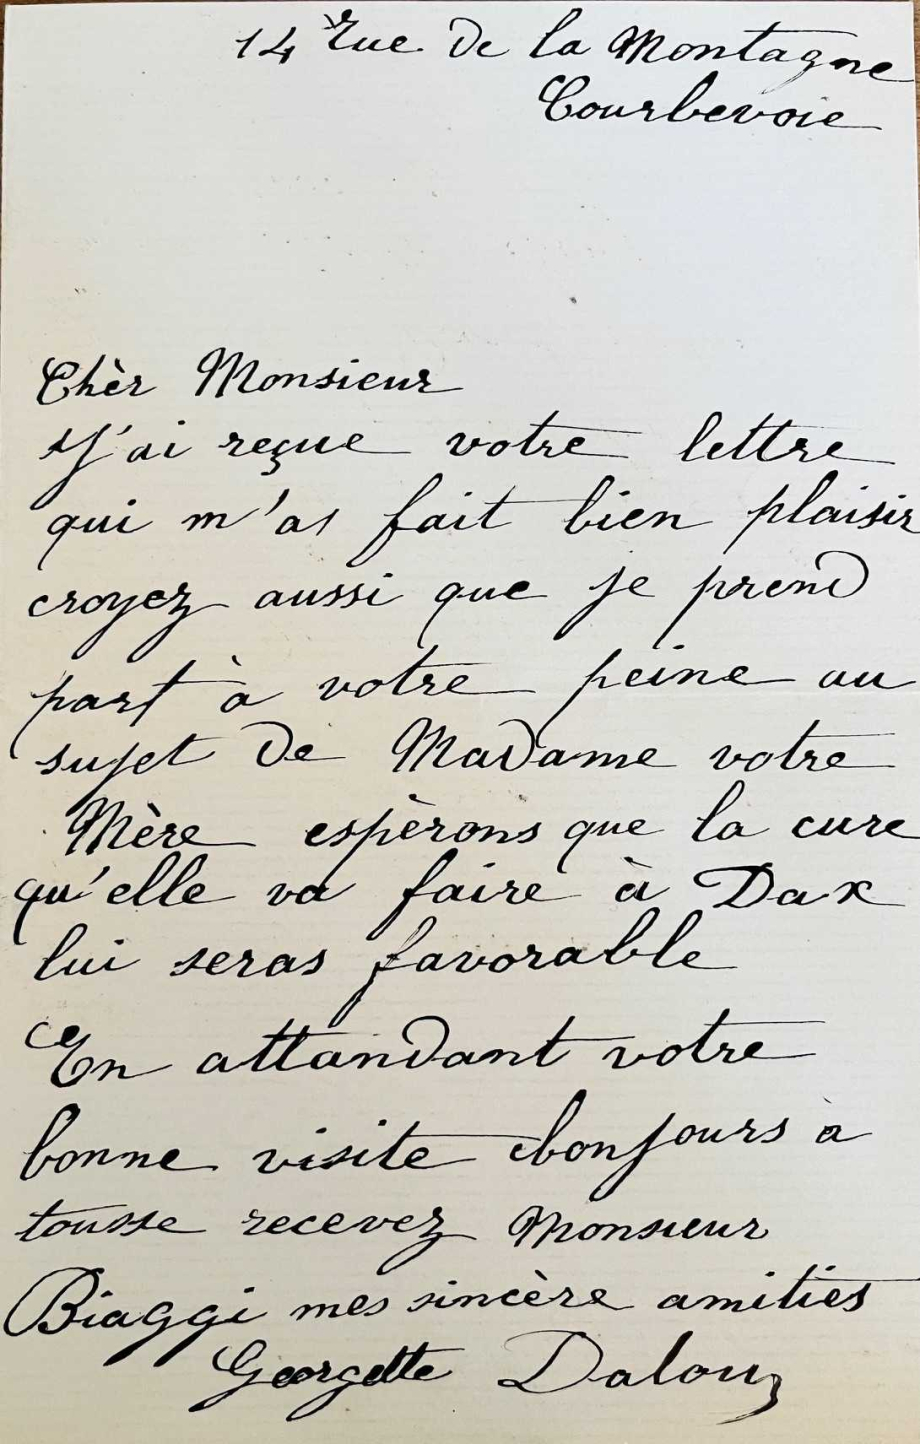 14 rue De la Montagne
Courbevoie
Chèr Monsieur
J'ai reçue votre lettre
qui m'as fait bien plaisir
croyez aussi que je prend
part à votre peine au
sujet De Madame votre
Mère espèrons que la cure
qu'elle va faire à Dax
lui seras favorable
En attandant votre
bonne visite bonjours à
tousse recevez Monsieur
Biaggi mes sincère amitiés
Georgette